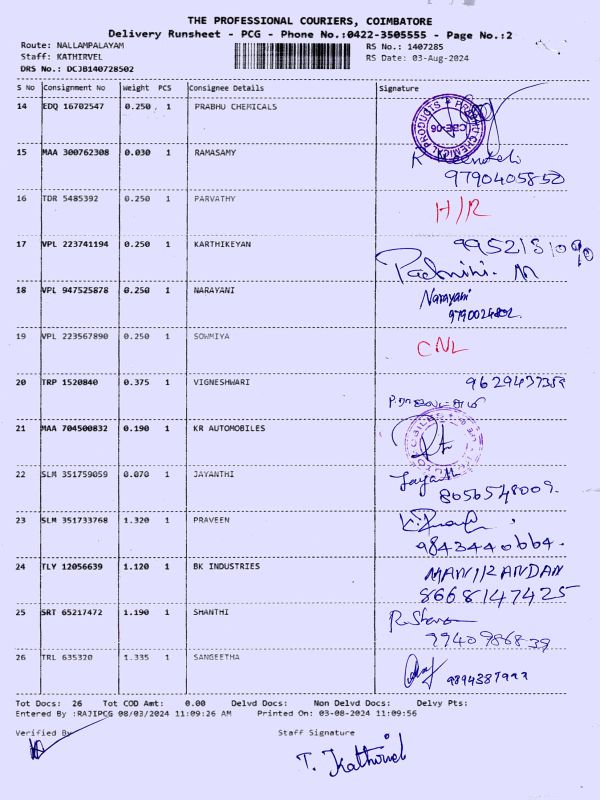 THE PROFESSIONAL COURIERS, COIMBATORE
Delivery Runsheet - PCG - Phone No.:0422-3505555 - Page No.:2
Route: NALLAMPALAYAM RS No.: 1407285
Staff: KATHIRVEL RS Date: 03-Aug-2024
DRS No.: DCJB140728502
S No Consignment No Weight PCS Consignee Details Signature
14 EDQ 16702547 0.250 1 PRABHU CHEMICALS
15 MAA 300762308 0.030 1 RAMASAMY
9790405850
16 TDR 5485392 0.250 1 PARVATHY H/R
17 VPL 223741194 0.250 1 KARTHIKEYAN
Padmini. M
18 VPL 947525878 0.250 1 NARAYANI Narayani
19 VPL 223567890 0.250 1 SOWMIYA CNL
20 TRP 1520840 0.375 1 VIGNESHWARI
21 MAA 704500832 0.190 1 KR AUTOMOBILES
22 SLM 351759059 0.070 1 JAYANTHI
8056548009.
23 SLM 351733768 1.320 1 PRAVEEN
9843440664.
24 TLY 12056639 1.120 1 BK INDUSTRIES MANIKANDAN
8668147425
25 SRT 65217472 1.190 1 SHANTHI
9940986839
26 TRL 635320 1.335 1 SANGEETHA
Tot Docs: 26 Tot COD Amt: 0.00 Delvd Docs: Non Delvd Docs: Delvy Pts:
Entered By :RAJIPCG 08/03/2024 11:09:26 AM Printed On: 03-08-2024 11:09:56
Verified By Staff Signature
T. Kathirvel